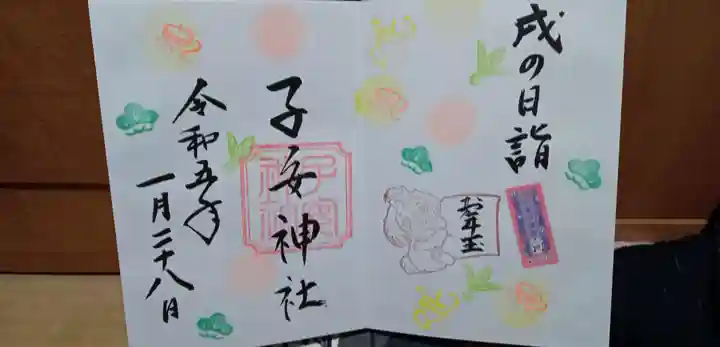 戌の日詣
お年玉
子安神社
令和五年
一月二十八日